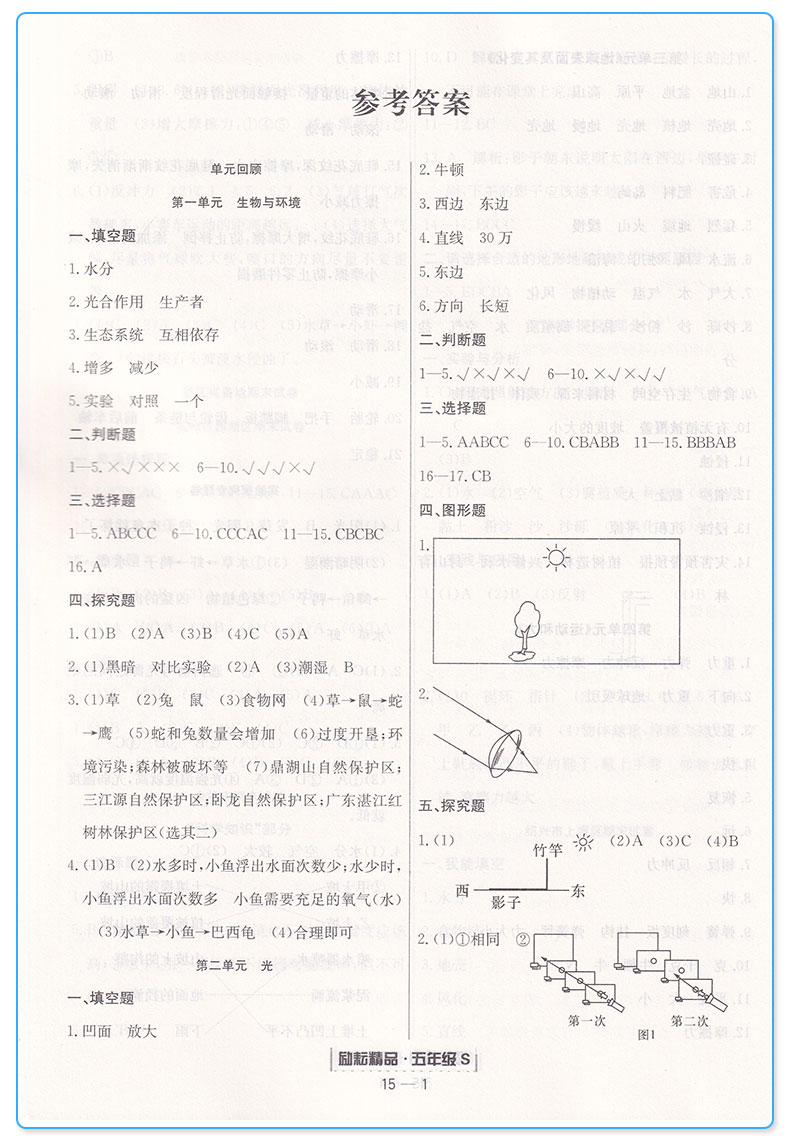 参考答案
单元回顾
第一单元 生物与环境
一、填空题
1.水分
2.光合作用 生产者
3.生态系统 互相依存
4.增多 减少
5.实验 对照 一个
二、判断题
1—5.×√××× 6—10.√√√×√
三、选择题
1—5.ABCCC 6—10.CCCAC 11—15.CBCBC
16.A
四、探究题
1.(1)B (2)A (3)B (4)C (5)A
2.(1)黑暗 对比实验 (2)A (3)潮湿 B
3.(1)草 (2)兔 鼠 (3)食物网 (4)草→鼠→蛇
→鹰 (5)蛇和兔数量会增加 (6)过度开垦;环
境污染;森林被破坏等 (7)鼎湖山自然保护区;
三江源自然保护区;卧龙自然保护区;广东湛江红
树林保护区(选其二)
4.(1)B (2)水多时,小鱼浮出水面次数少;水少时,
小鱼浮出水面次数多 小鱼需要充足的氧气(水)
(3)水草→小鱼→巴西龟 (4)合理即可
第二单元 光
一、填空题
1.凹面 放大
2.牛顿
3.西边 东边
4.直线 30万
5.东边
6.方向 长短
二、判断题
1—5.√×√√× 6—10.×√×√√
三、选择题
1—5.AABCC 6—10.CBABB 11—15.BBBAB
16—17.CB
四、图形题
1.
2.
五、探究题
1.(1) (2)A (3)C (4)B
竹竿
西 东
影子
2.(1)①相同 ②
第一次 第二次
图1
励耘精品·五年级S
15—1